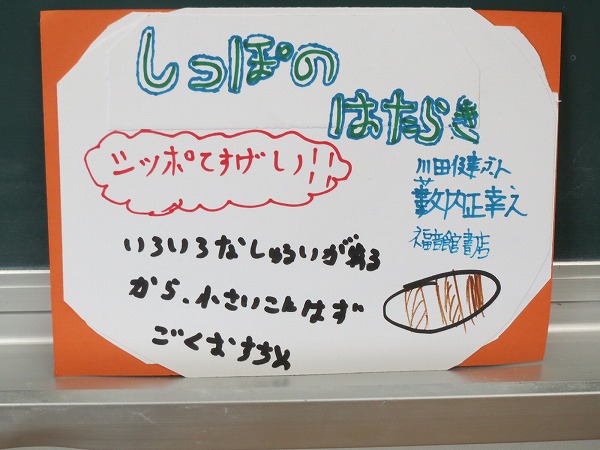 しっぽの
はたらき
シッポてすげしい!!
川田健さん
薮内正幸え
福音館書店
いろいろなしゅるいが知る
から、小さいこんはず
ごくおすすめ